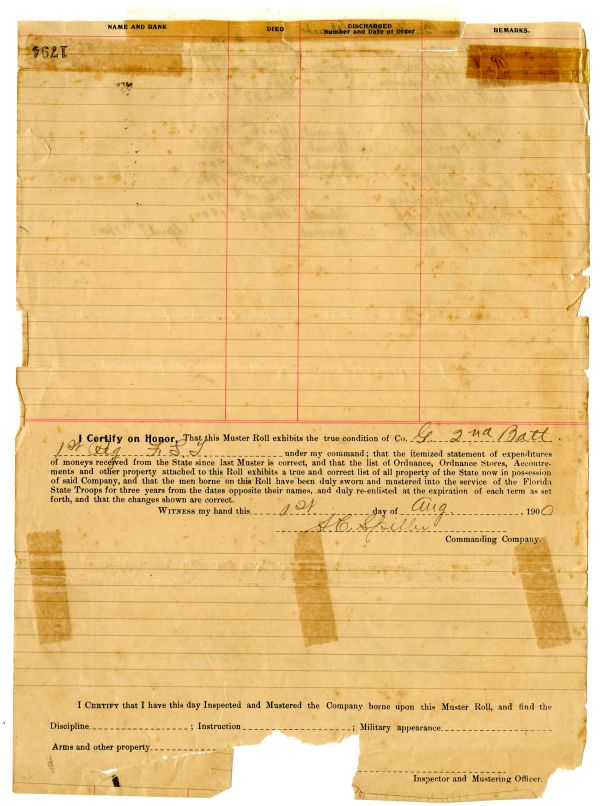 NAME AND RANK DIED DISCHARGED Number and Date of Order REMARKS.
1794
I Certify on Honor, That this Muster Roll exhibits the true condition of Co. G 2nd Batt.
1st Reg F. S. T under my command; that the itemized statement of expenditures
of moneys received from the State since last Muster is correct, and that the list of Ordnance, Ordnance Stores, Accoutre-
ments and other property attached to this Roll exhibits a true and correct list of all property of the State now in possession
of said Company, and that the men borne on this Roll have been duly sworn and mustered into the service of the Florida
State Troops for three years from the dates opposite their names, and duly re-enlisted at the expiration of each term as set
forth, and that the changes shown are correct.
WITNESS my hand this 1st day of Aug 1900
Spiller
Commanding Company.
I CERTIFY that I have this day Inspected and Mustered the Company borne upon this Muster Roll, and find the
Discipline ; Instruction ; Military appearance
Arms and other property
Inspector and Mustering Officer.